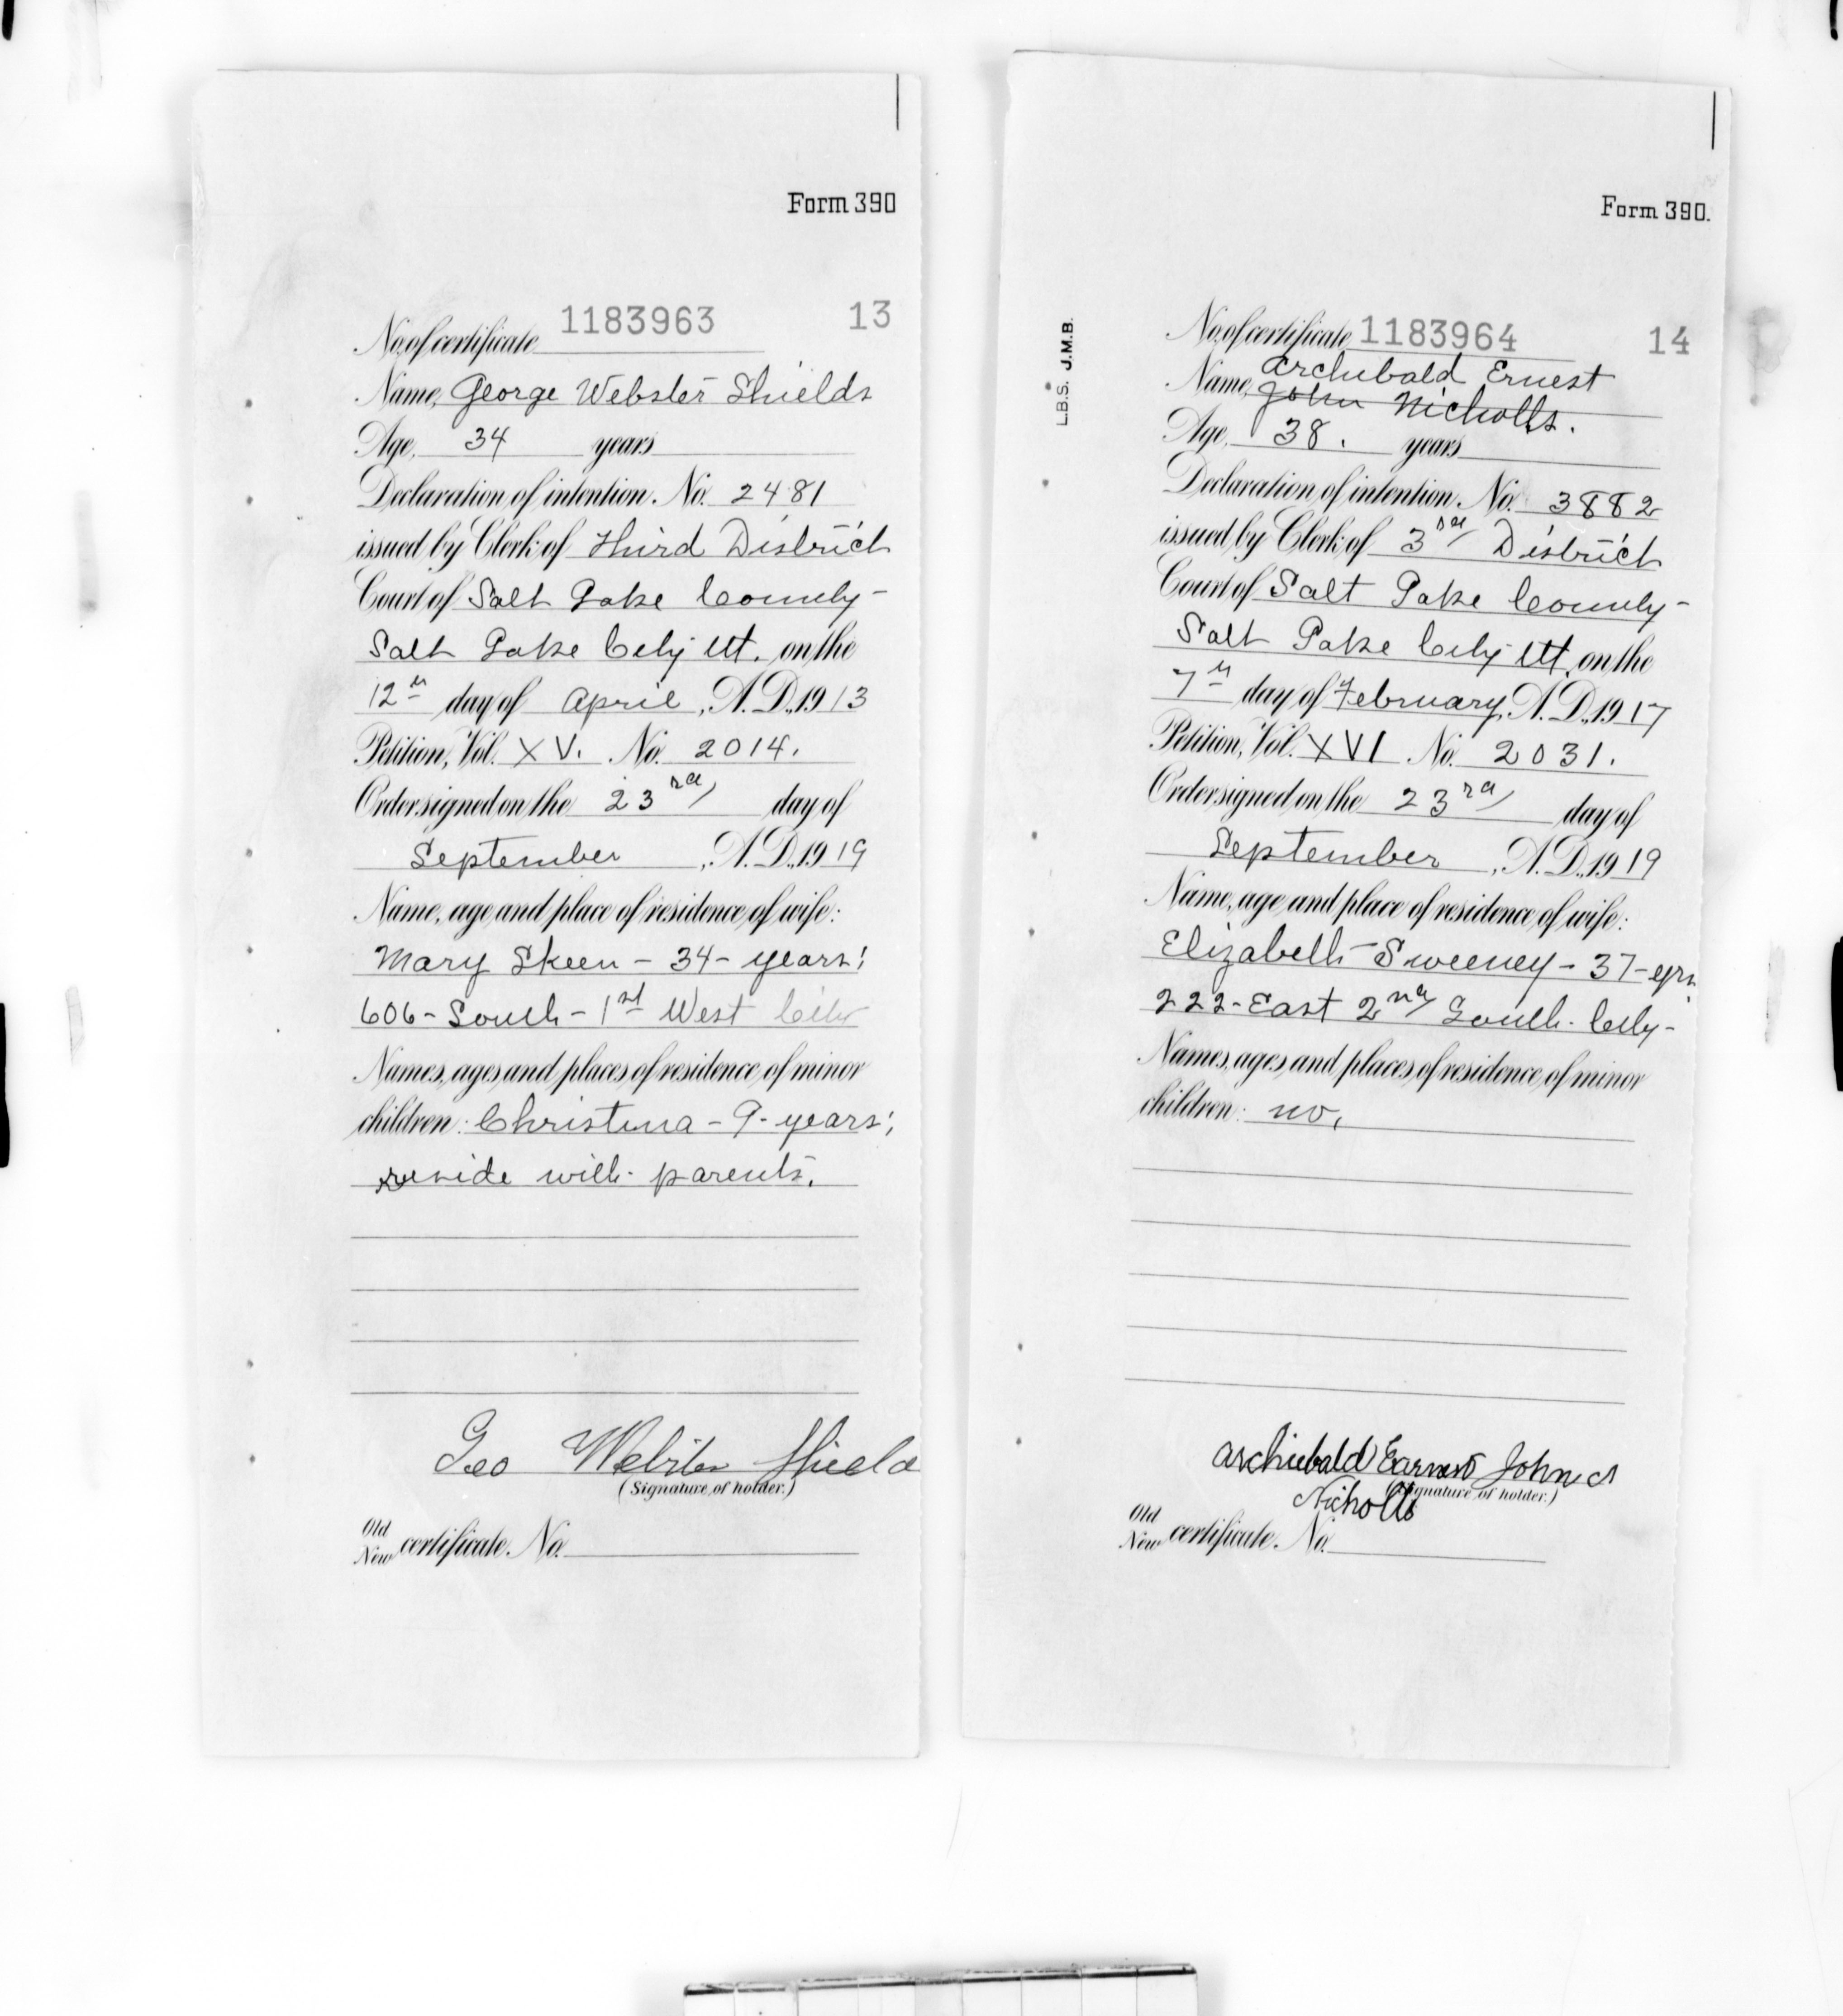 Form 390
No. of certificate 1183963 13
Name, George Webster Shields
Age, 34 years
Declaration of intention. No. 2481
issued by Clerk of Third District
Court of Salt Lake County-
Salt Lake City Ut. on the
12th day of April, A.D., 1913
Petition, Vol. XV. No. 2014.
Order signed on the 23rd day of
September, A.D., 1919
Name, age and place of residence of wife:
Mary Skeen - 34 - years;
606 - South - 1st West City
Names, ages and places of residence of minor
children: Christina - 9 - years;
reside with parents.
Geo Webster Shields
(Signature of holder.)
Old
New certificate. No.
Form 390.
L.B.S. J.M.B.
No. of certificate 1183964 14
Archibald Ernest
Name, John Nicholls.
Age, 38. years
Declaration of intention. No. 3882
issued by Clerk of 3rd District
Court of Salt Lake County-
Salt Lake City Ut. on the
7th day of February, A.D., 1917
Petition, Vol. XVI No. 2031.
Order signed on the 23rd day of
September, A.D., 1919
Name, age and place of residence of wife:
Elizabeth Sweeney - 37 - yrs
222 - East 2nd South. City-
Names, ages and places of residence of minor
children: no.
Archiebald Earnest John
Nicholls
(Signature of holder.)
Old
New certificate. No.